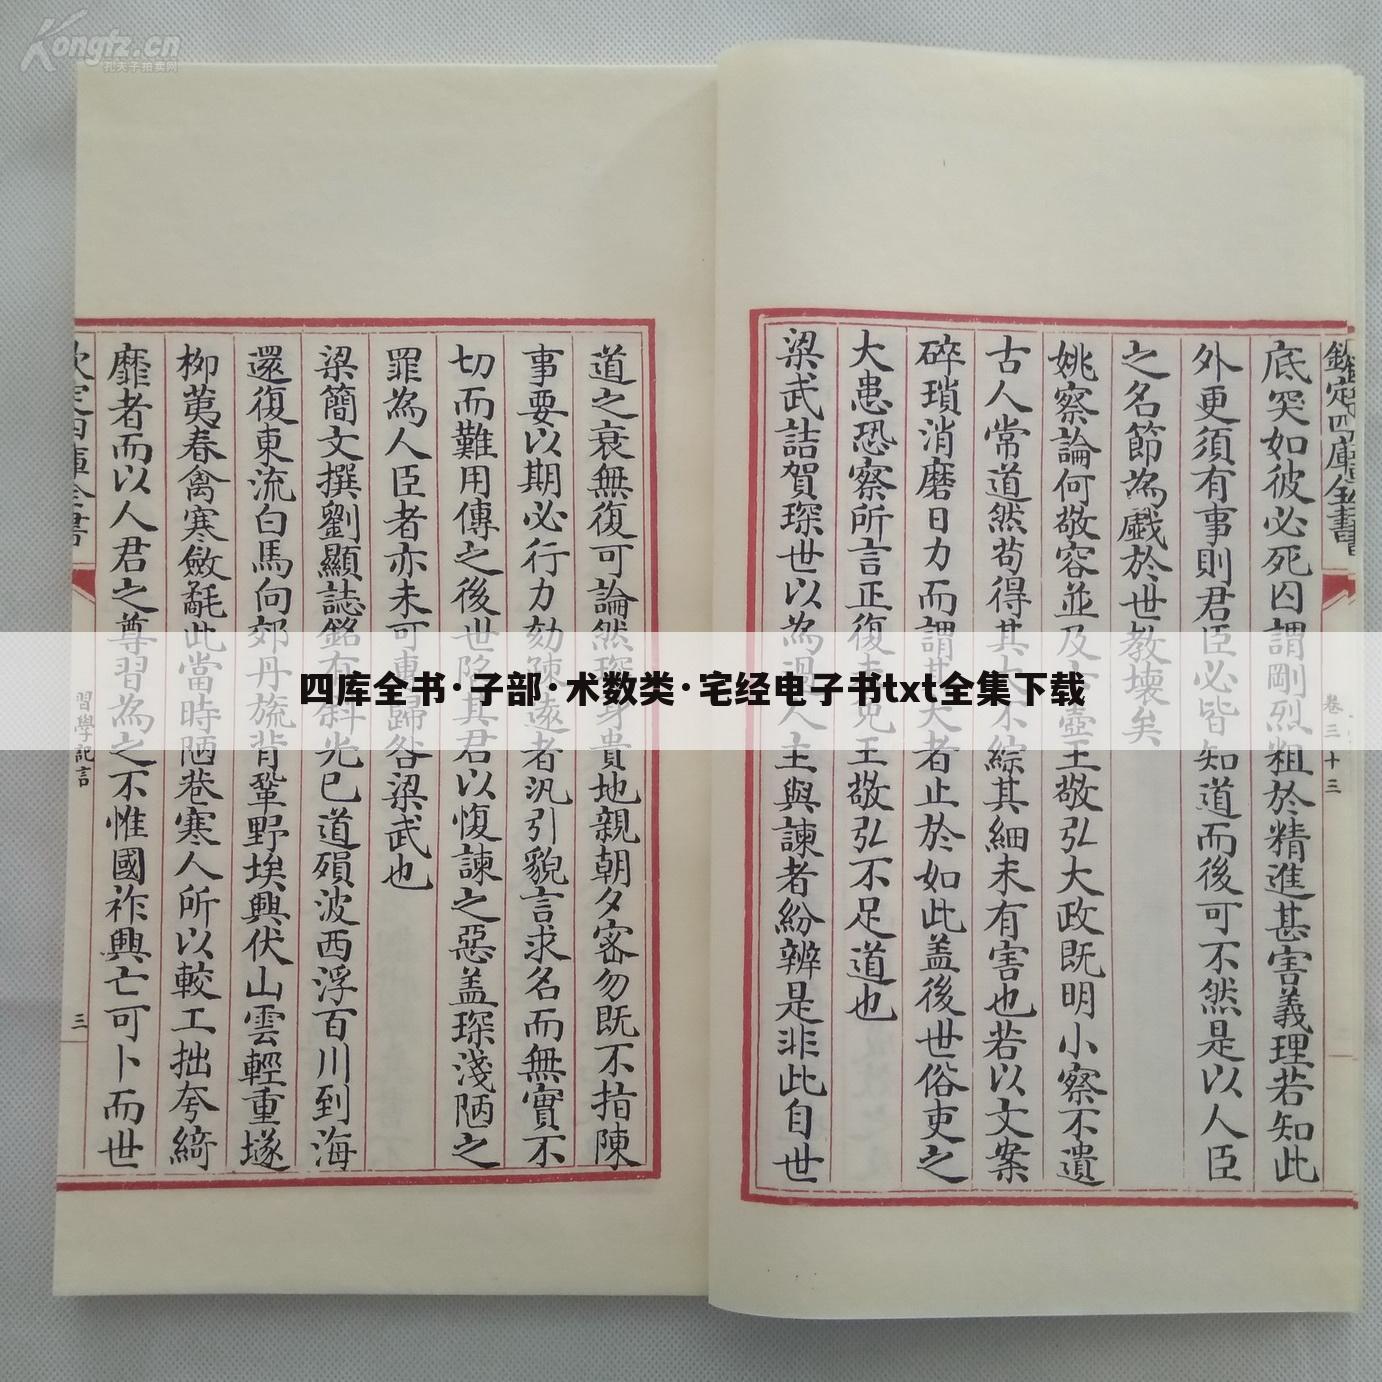 Kongfz.cn
孔夫子拍卖网
欽定四庫全書
卷三十三
底突如彼必死囚謂剛烈粗於精進甚害義理若知此
外更須有事則君臣必皆知道而後可不然是以人臣
之名節為戲於世教壞矣
姚察論何敬容並及卞壼王敬弘大政既明小察不遺
古人常道然苟得其大不綜其細未有害也若以文案
碎瑣消磨日力而謂其大者止於如此盖後世俗吏之
大患恐察所言正復未免王敬弘不足道也
梁武詰賀琛世以為過人主與諫者紛辨是非此自世
道之衰無復可論然琛身貴地親朝夕密勿既不指陳
事要以期必行力劾陳遠者汎引貌言求名而無實不
切而難用傳之後世陷其君以愎諫之惡盖琛淺陋之
罪為人臣者亦未可專歸咎梁武也
梁簡文撰劉顯誌銘有斜光已道殞波西浮百川到海
還復東流白馬向郊丹旐背鞏野埃興伏山雲輕重墜
柳荑春禽寒斂毳此當時陋巷寒人所以較工拙夸綺
靡者而以人君之尊習為之不惟國祚興亡可卜而世
欽定四庫全書
習學記言
三
四库全书·子部·术数类·宅经电子书txt全集下载